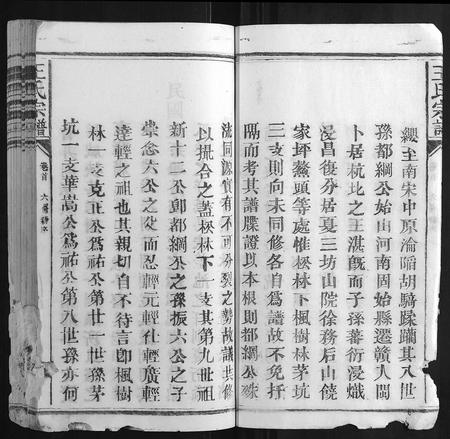 王氏宗譜
纓至南宋中原淪陷胡騎蹂躪其八世
孫都綱公始由河南固始縣遷贛人閩
卜居杭北之王湛旣而子孫蕃衍浸熾
浸昌復分居夏三坊山院徐務后山饒
家坪鰲頭等處惟楙林下楓樹林茅坑
三支則向未同修各自爲譜故不免扞
隔而考其譜牒證以本根則都綱公殊
流同源實有不可分裂之勢故議共修
以抵合之蓋楙林下一支其第九世祖
新十二公卽都綱公之孫振六公之子
崇念六公之從而忍輕元輕社輕廣輕
達輕之祖也其親切自不待言卽楓樹
林一支克正公爲祐公第廿一世孫茅
坑一支華嵩公爲祐公第八世孫亦何
王氏宗譜
卷首